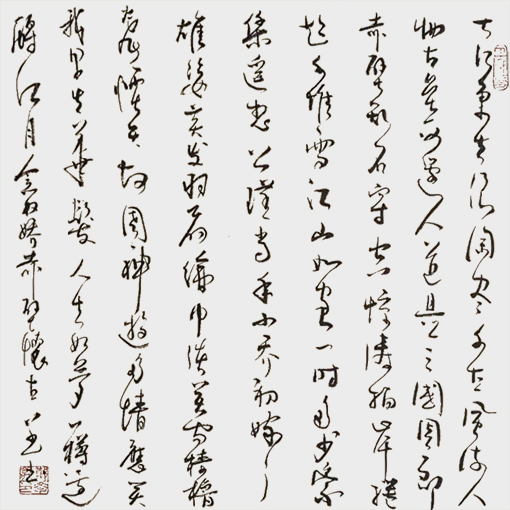 大江東去浪淘盡千古風流人
物故壘西邊人道是三國周郎
赤壁亂石穿空驚濤拍岸捲
起千堆雪江山如畫一時多少豪
傑遥想公瑾當年小喬初嫁了
雄姿英发羽扇綸巾談笑間樯櫓
灰飛煙滅故國神遊多情應笑
我早生華髮人生如夢一樽還
酹江月念奴嬌赤壁懷古